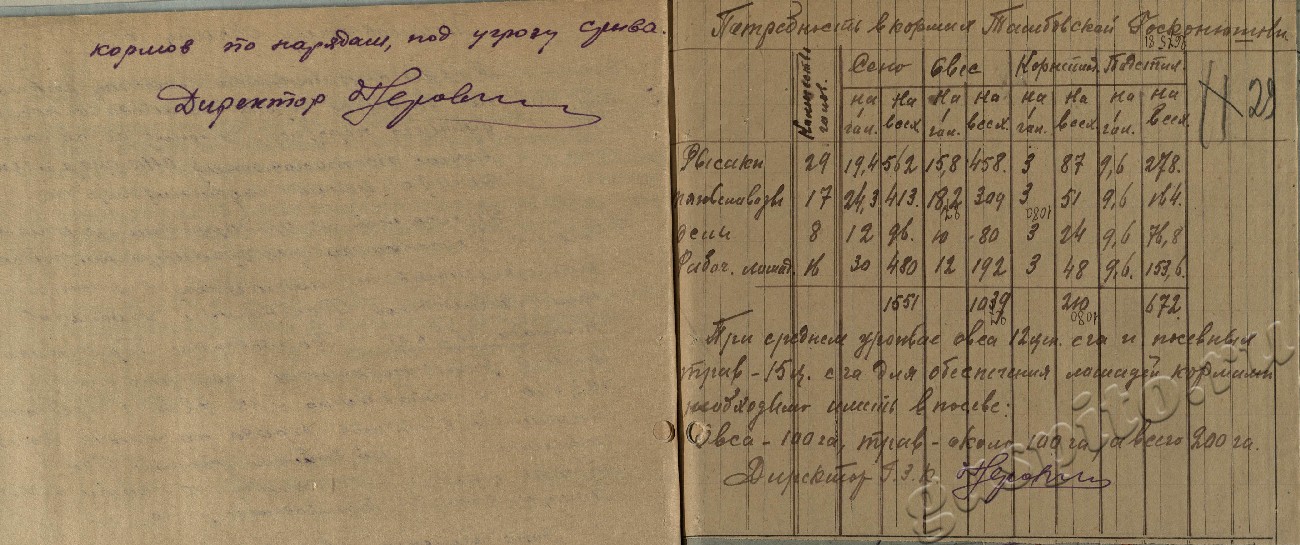 кормов по нарядам, под угрозу срыва.
Директор
Потребность в кормах Тамбовской Госконюшни
Количество голов. Сено Овес Подстил.
на гол. на всех на гол. на всех. на гол. на всех. на гол. на всех.
Рысаки 29 19,4 562 15,8 458. 3 87 9,6 278.
17 24,3 413. 18,2 309 3 51 9,6 164.
8 12 96. 10 80 3 24 9,6 76,8
Рабоч. лошад. 16 30 480 12 192 3 48 9,6. 153,6.
1551 1039 210 672.
При среднем урожае овса 12 цн. с га и посевных
трав - 15 ц. с га для обеспечения лошадей кормами
необходимо иметь в посеве:
Овса - 100 га, трав - около 100 га, а всего 200 га.
Директор Г.З.К.
29
gaspito.ru